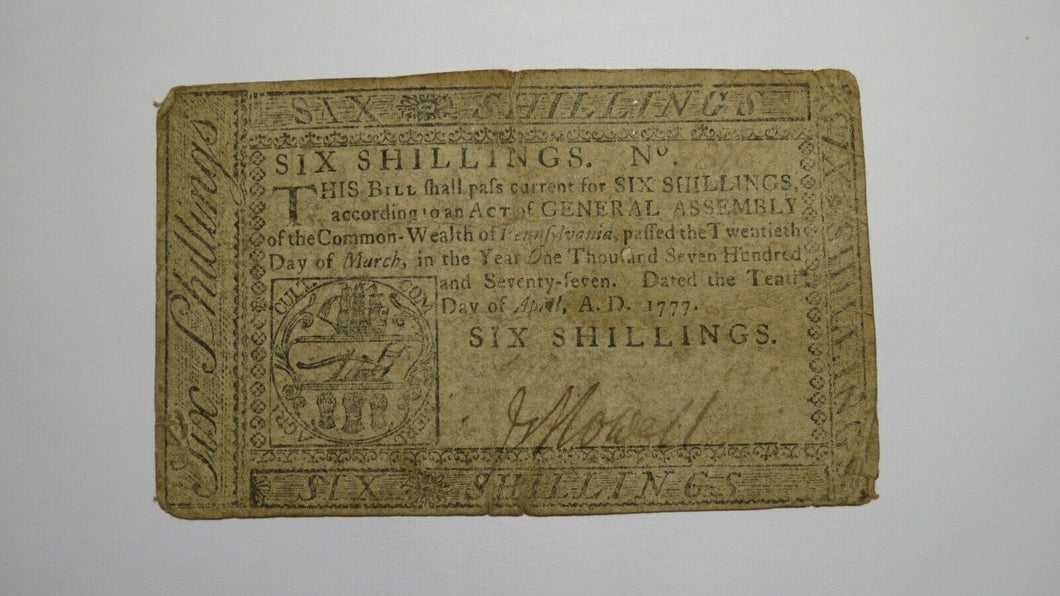 SIX SHILLINGS
Six Shillings
SIX SHILLINGS. No.
THIS BILL ſhall paſs current for SIX SHILLINGS,
according to an ACT of GENERAL ASSEMBLY
of the Common-Wealth of Pennſylvania, paſſed the Twentieth
Day of March, in the Year One Thouſand Seven Hundred
and Seventy-ſeven. Dated the Tenth
Day of April, A. D. 1777.
SIX SHILLINGS.
AGRI CULT COM MERC
SIX SHILLINGS